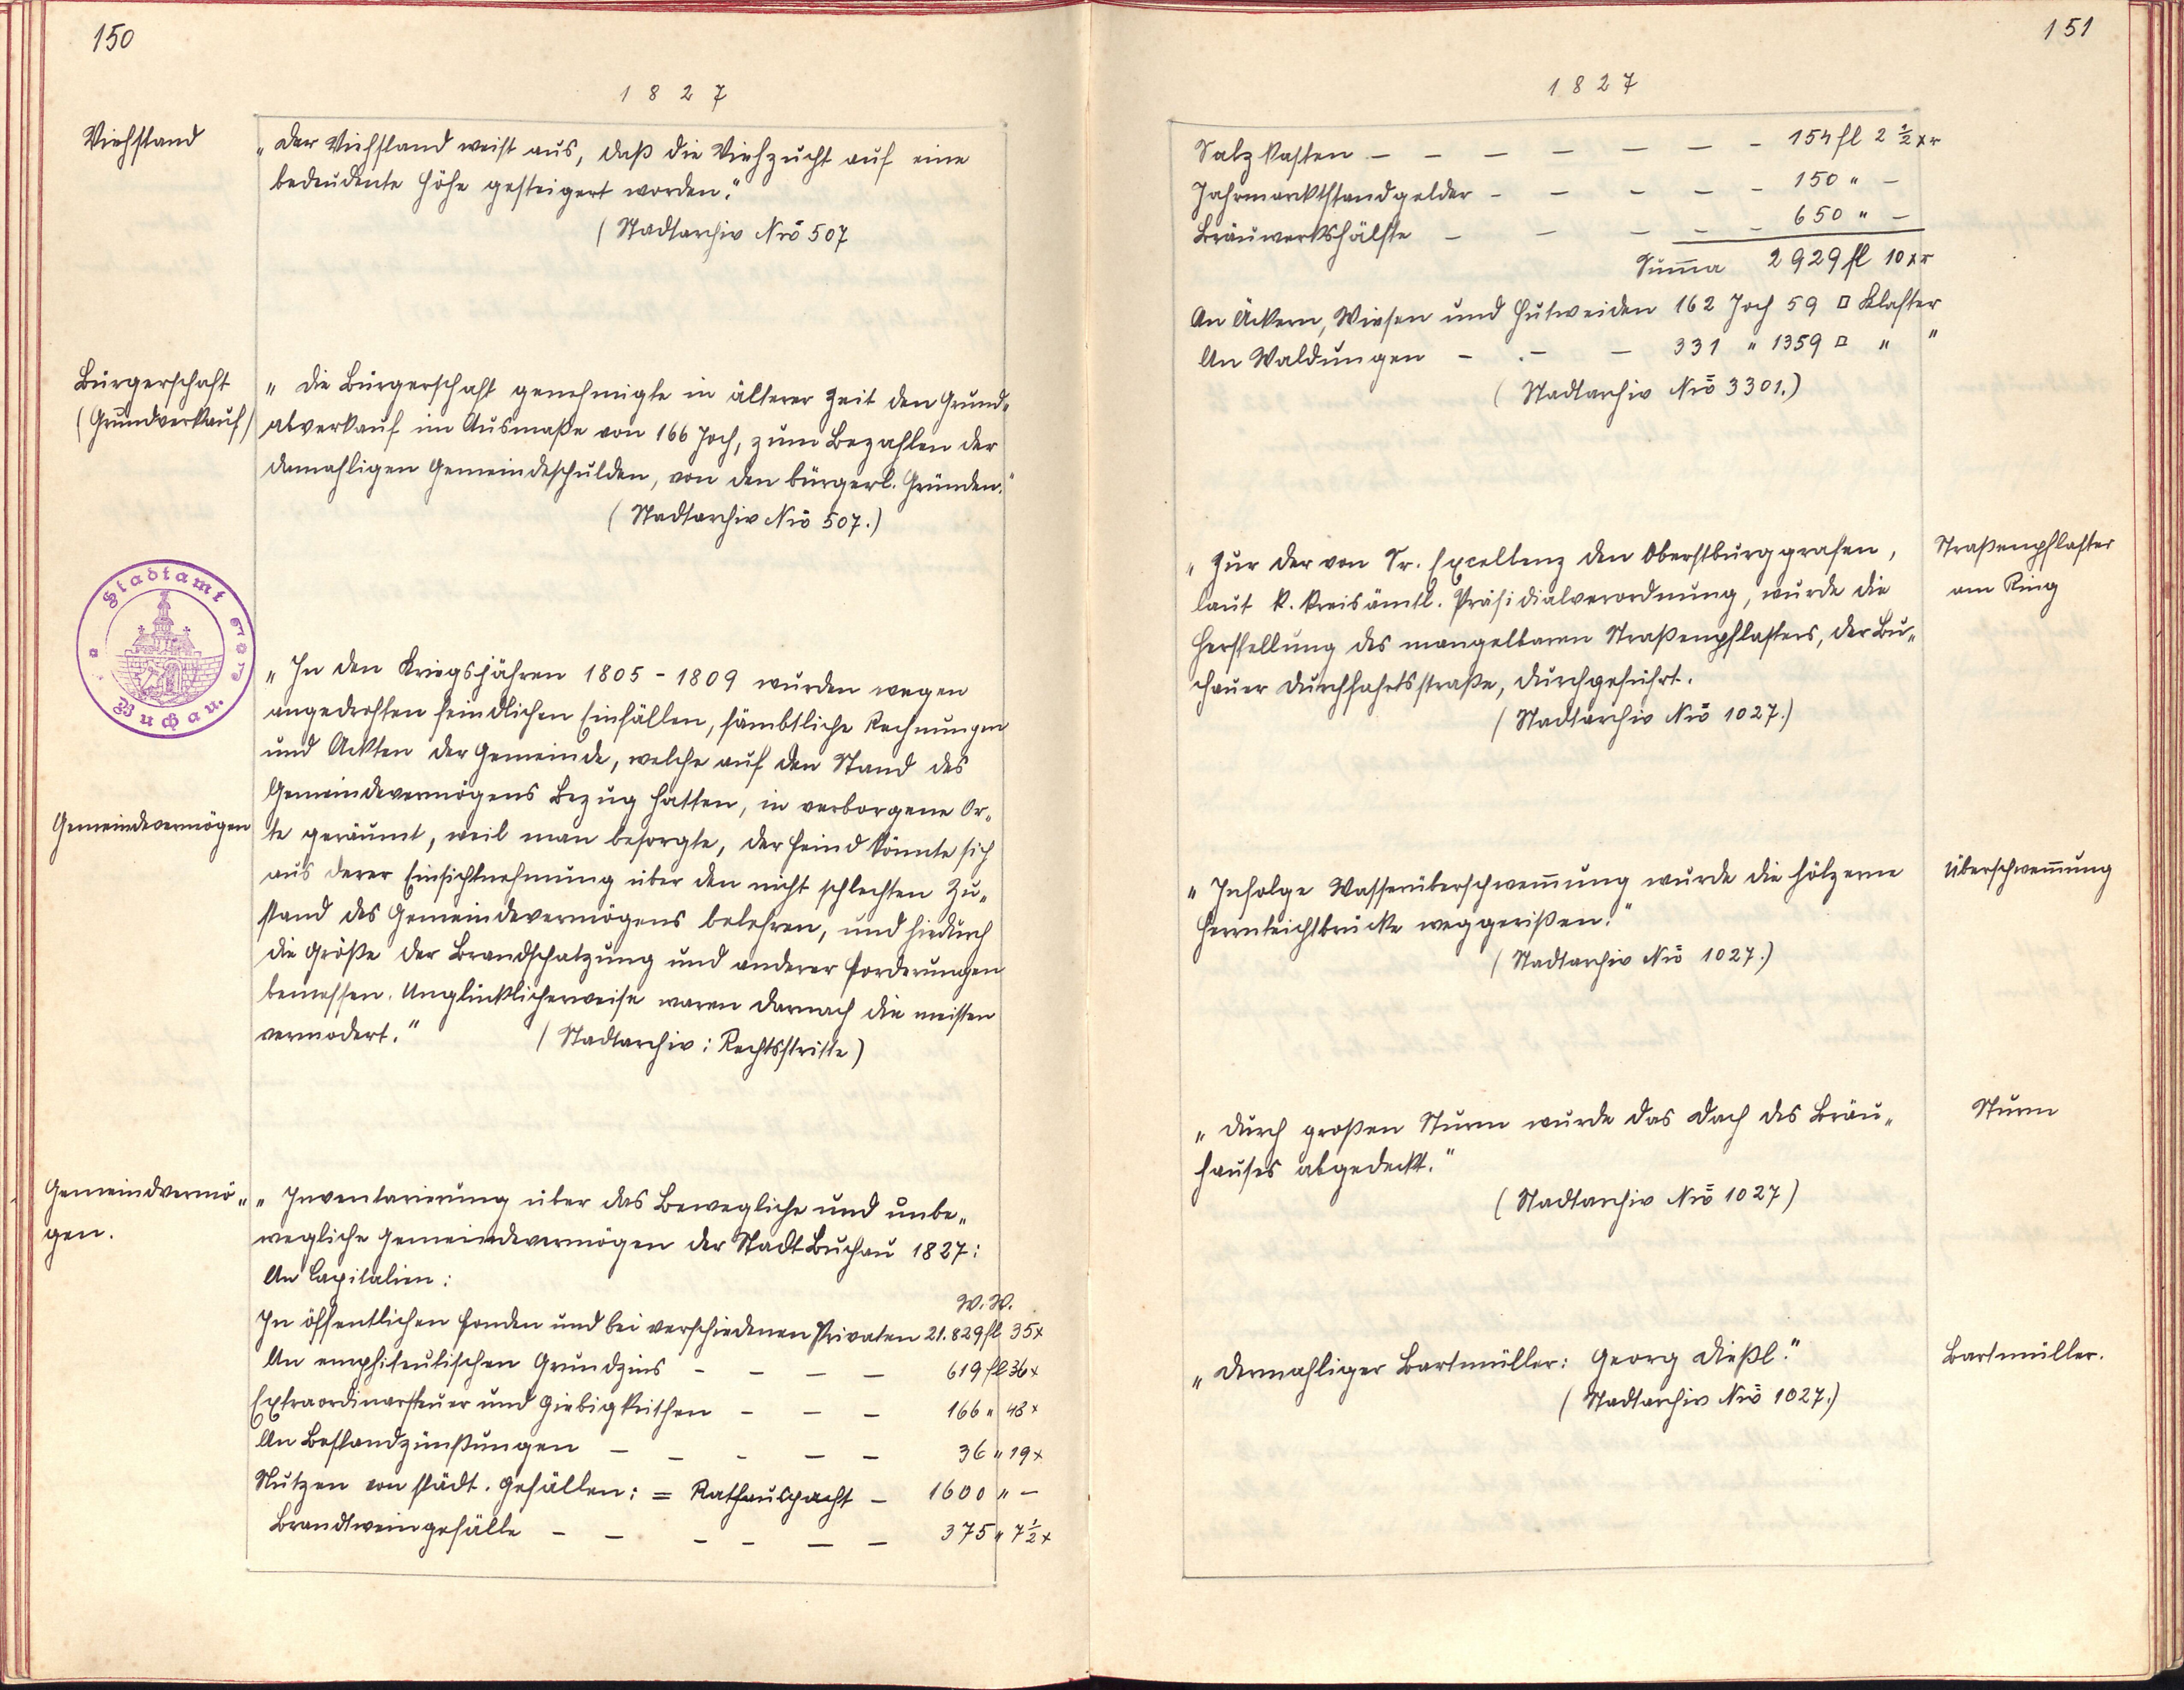 150
1827
Viehstand
„Der Viehstand weist aus, daß die Viehzucht auf eine
bedeudente Höhe gesteigert worden."
(Stadtarchiv Nrō 507
Bürgerschaft
(Grundverkauf)
„Die Bürgerschaft genehmigte in älterer Zeit den Grund„
abverkauf im Ausmaße von 166 Joch, zum Bezahlen der
damahligen Gemeindeschulden, von den bürgerl. Gründen."
(Stadtarchiv Nrō 507.)
Stadtamt
Buchau.
„In den Kriegsjahren 1805 - 1809 wurden wegen
angedrohten feindlichen Einfällen, sämbtliche Rechnungen
und Ackten der Gemeinde, welche auf den Stand des
Gemeindevermögens Bezug hatten, in verborgene Or„
Gemeindevermögen
te geräumt, weil man besorgte, der Feind könnte sich
aus derer Einsichtnehmung über den nicht schlechten Zu„
stand des Gemeindevermögens belehren, und hiedurch
die Größe der Brandschatzung und anderer Forderungen
bemessen. Unglücklicherweise waren darnach die meisten
vermodert." (Stadtarchiv: Rechtsstritte)
Gemeindvermö„
gen.
„Inventarierung über das Bewegliche und unbe„
wegliche Gemeindevermögen der Stadt Buchau 1827:
An Capitalien:
W. W.
In öffentlichen Fonden und bei verschiedenen Privaten 21.829 fl 35x
An emphiteutischen Grundzins – – – – 619 fl 36x
Extraordinarsteuer und Giebigkeithen – – – 166 " 48x
An Bestandzinßungen – – – – – 36 " 19x
Nutzen von städt. Gefällen: = Rathauspacht – 1600 " –
Brandtweingefälle – – – – – – 375 " 7½x
151
1827
Salzkasten – – – – – – – 154 fl 2 ½ xr
Jahrmarcktstandgelder – – – – – 150 " –
Bräuwerkshälfte – – – – – 650 " –
Sum̄a 2929 fl 10 xr
An Äckern, Wiesen und Hutweiden 162 Joch 59 □ Klafter
An Waldungen – – – 331 " 1359 □ " "
(Stadtarchiv Nrō 3301.)
„Zur der von Sr. Excellenz den Oberstburggrafen,
laut k. kreisämtl. Präsidialverordnung, wurde die
Herstellung des mangelbaren Straßenpflasters, der Bu„
chauer Durchfahrtsstraße, durchgeführt.
(Stadtarchiv Nrō 1027.)
Straßenpflaster
am Ring
„Infolge Wasserüberschwem̄ung wurde die hölzerne
Herrnteichtbrücke weggerißen."
(Stadtarchiv Nrō 1027.)
Überschwem̄ung
„Durch großen Sturm wurde das Dach des Bräu„
hauses abgedeckt."
(Stadtarchiv Nrō 1027)
Sturm
„Dermahliger Bartmüller: Georg Dießl."
(Stadtarchiv Nrō 1027.)
Bartmüller.